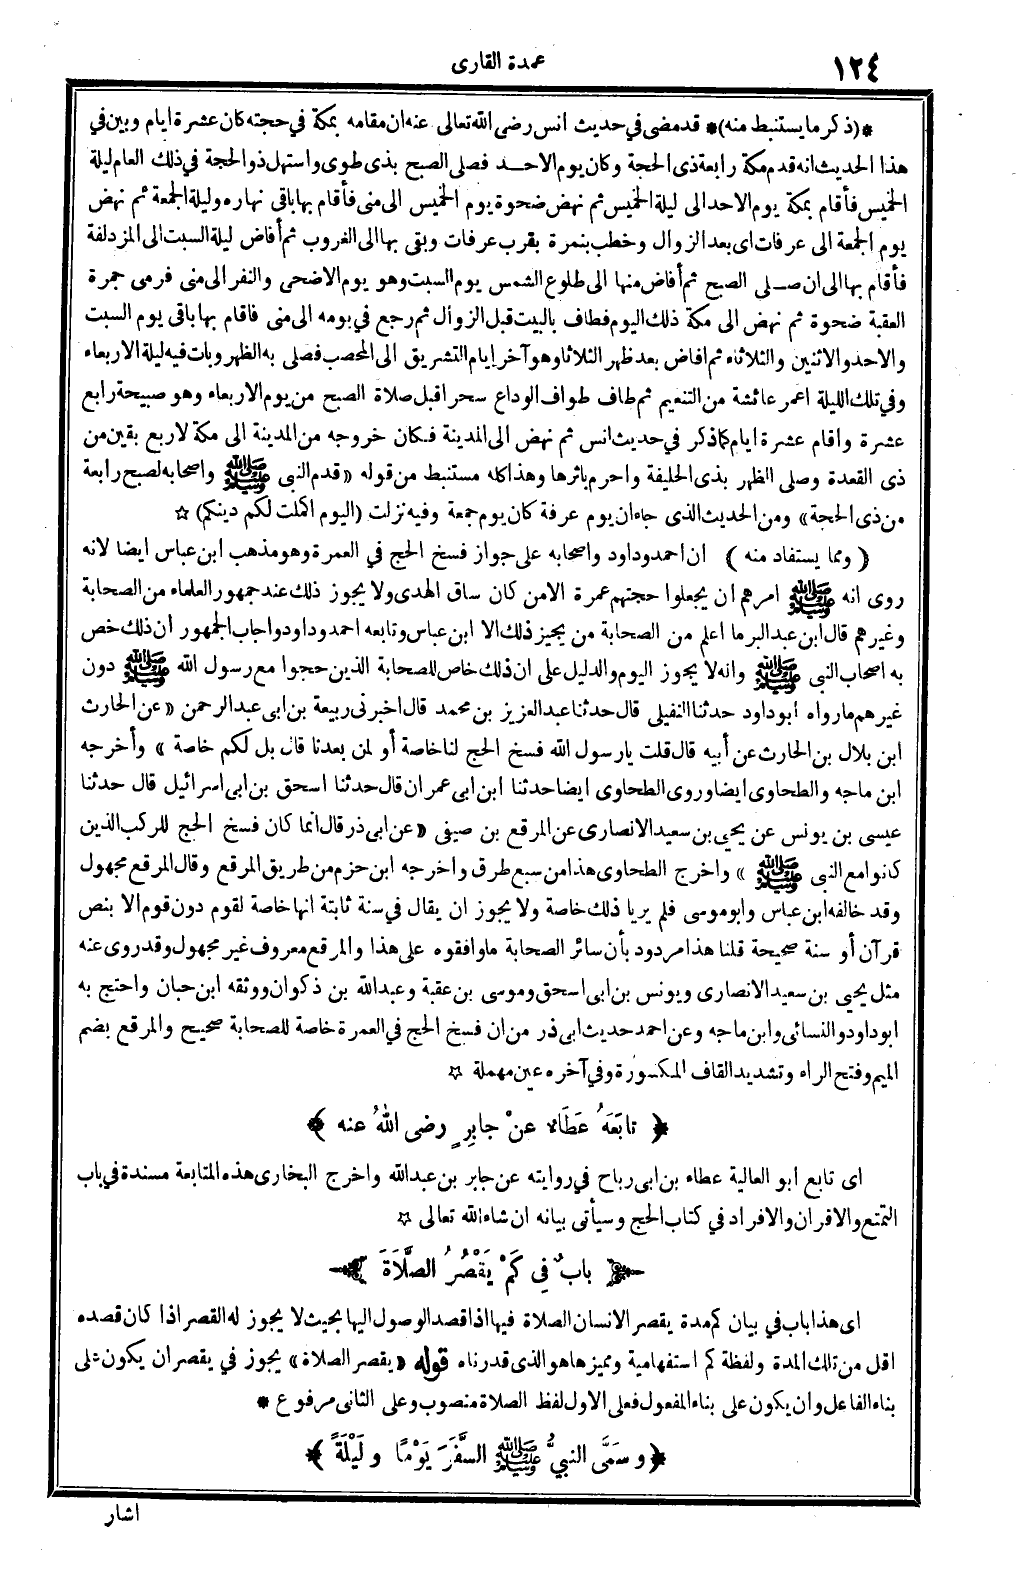 ١٢٤
عمدة القارى
*(ذكر ما يستنبط منه)* قد مضى في حديث انس رضى الله تعالى عنه ان مقامه بمكة في حجته كان عشرة ايام وبين في
هذا الحديث انه قدم مكة رابعة ذى الحجة وكان يوم الاحد فصلى الصبح بذى طوى واستهل ذو الحجة في ذلك العام ليلة
الخميس فأقام بمكة يوم الاحد الى ليلة الخميس ثم نهض ضحوة يوم الخميس الى منى فأقام بها باقى نهاره وليلة الجمعة ثم نهض
يوم الجمعة الى عرفات اى بعد الزوال وخطب بنمرة بقرب عرفات وبقى بها الى الغروب ثم أفاض ليلة السبت الى المزدلفة
فأقام بها الى ان صلى الصبح ثم أفاض منها الى طلوع الشمس يوم السبت وهو يوم الاضحى والنفر الى منى فرمى جمرة
العقبة ضحوة ثم نهض الى مكة ذلك اليوم فطاف بالبيت قبل الزوال ثم رجع في يومه الى منى فاقام بها باقى يوم السبت
والاحد والاثنين والثلاثاء ثم افاض بعد ظهر الثلاثا وهو آخر ايام التشريق الى المحصب فصلى به الظهر وبات فيه ليلة الاربعاء
وفي تلك الليلة اعمر عائشة من التنعيم ثم طاف طواف الوداع سحرا قبل صلاة الصبح من يوم الاربعاء وهو صبيحة رابع
عشرة واقام عشرة ايام كما ذكر في حديث انس ثم نهض الى المدينة فكان خروجه من المدينة الى مكة لاربع بقين من
ذى القعدة وصلى الظهر بذى الحليفة واحرم باثرها وهذا كله مستنبط من قوله «قدم النبى ﷺ واصحابه لصبح رابعة
من ذى الحجة» ومن الحديث الذى جاء ان يوم عرفة كان يوم جمعة وفيه نزلت (اليوم اكملت لكم دينكم) ☆
(ومما يستفاد منه) ان احمد وداود واصحابه على جواز فسخ الحج في العمرة وهو مذهب ابن عباس ايضا لانه
روى انه ﷺ امرهم ان يجعلوا حجتهم عمرة الا من كان ساق الهدى ولا يجوز ذلك عند جمهور العلماء من الصحابة
وغيرهم قال ابن عبد البر ما اعلم من الصحابة من يجيز ذلك الا ابن عباس وتابعه احمد وداود واجاب الجمهور ان ذلك خص
به اصحاب النبى ﷺ وانه لا يجوز اليوم والدليل على ان ذلك خاص للصحابة الذين حجوا مع رسول الله ﷺ دون
غيرهم ما رواه ابو داود حدثنا النفيلى قال حدثنا عبد العزيز بن محمد قال اخبرنى ربيعة بن ابى عبد الرحمن «عن الحارث
ابن بلال بن الحارث عن أبيه قال قلت يا رسول الله فسخ الحج لنا خاصة أو لمن بعدنا قال بل لكم خاصة» وأخرجه
ابن ماجه والطحاوى ايضا وروى الطحاوى ايضا حدثنا ابن ابى عمران قال حدثنا اسحق بن ابى اسرائيل قال حدثنا
عيسى بن يونس عن يحيى بن سعيد الانصارى عن المرقع بن صيفى «عن ابى ذر قال انما كان فسخ الحج للركب الذين
كانوا مع النبى ﷺ» واخرج الطحاوى هذا من سبع طرق واخرجه ابن حزم من طريق المرقع وقال المرقع مجهول
وقد خالفه ابن عباس وابو موسى فلم يريا ذلك خاصة ولا يجوز ان يقال في سنة ثابتة انها خاصة لقوم دون قوم الا بنص
قرآن أو سنة صحيحة قلنا هذا مردود بأن سائر الصحابة ما وافقوه على هذا والمرقع معروف غير مجهول وقد روى عنه
مثل يحيى بن سعيد الانصارى ويونس بن ابى اسحق وموسى بن عقبة وعبد الله بن ذكوان ووثقه ابن حبان واحتج به
ابو داود والنسائى وابن ماجه وعن احمد حديث ابى ذر من ان فسخ الحج في العمرة خاصة للصحابة صحيح والمرقع بضم
الميم وفتح الراء وتشديد القاف المكسورة وفي آخره عين مهملة ☆
﴿تابَعَهُ عَطَاءٌ عنْ جابِرٍ رضى اللهُ عنه﴾
اى تابع ابو العالية عطاء بن ابى رباح في روايته عن جابر بن عبد الله واخرج البخارى هذه المتابعة مسندة في باب
التمتع والاقران والافراد في كتاب الحج وسيأتى بيانه ان شاء الله تعالى ☆
﴿بابٌ في كَمْ يَقْصُرُ الصَّلَاةَ﴾
اى هذا باب في بيان كم مدة يقصر الانسان الصلاة فيها اذا قصد الوصول اليها بحيث لا يجوز له القصر اذا كان قصده
اقل من تلك المدة ولفظة كم استفهامية ومميزها هو الذى قدرناه قوله «يقصر الصلاة» يجوز في يقصر ان يكون على
بناء الفاعل وان يكون على بناء المفعول فعلى الاول لفظ الصلاة منصوب وعلى الثانى مرفوع *
﴿وسَمَّى النبيُّ ﷺ السَّفَرَ يَوْمًا ولَيْلَةً﴾
اشار